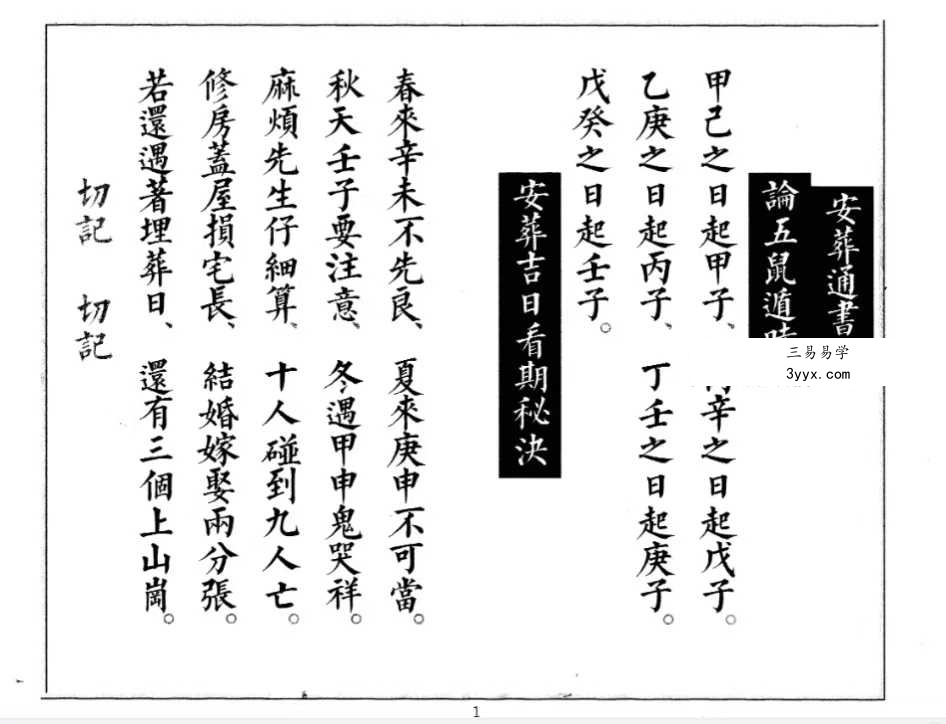 安葬通書
論五鼠遁
甲己之日起甲子、辛之日起戊子。
乙庚之日起丙子、丁壬之日起庚子。
戊癸之日起壬子。
安葬吉日看期秘決
春來辛未不先良、夏來庚申不可當。
秋天壬子要注意、冬遇甲申鬼哭祥。
麻煩先生仔細算、十人碰到九人亡。
修房蓋屋損宅長、結婚嫁娶兩分張。
若還遇著埋葬日、還有三個上山崗。
切記 切記
三易易学
3yyx.com
1